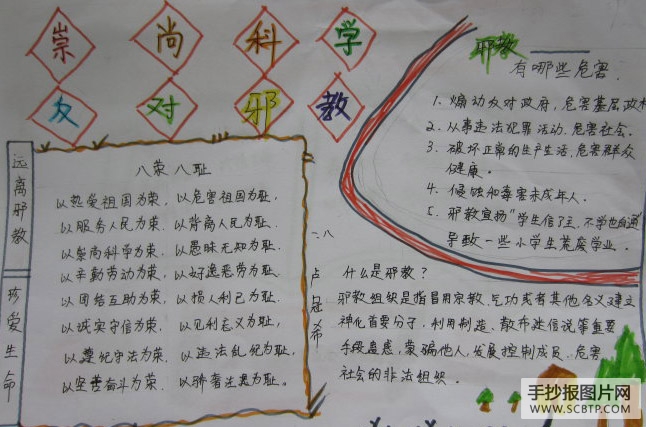 崇尚科学
友对邪教
远离邪教
珍爱生命
八荣八耻
以热爱祖国为荣，以危害祖国为耻，
以服务人民为荣，以背离人民为耻，
以崇尚科学为荣，以愚昧无知为耻，
以辛勤劳动为荣，以好逸恶劳为耻，
以团结互助为荣，以损人利己为耻，
以诚实守信为荣，以见利忘义为耻，
以遵纪守法为荣，以违法乱纪为耻，
以坚苦奋斗为荣，以骄奢淫逸为耻。
二.八
卢冠希
邪教
有哪些危害.
1. 煽动反对政府，危害基层政权
2. 从事违法犯罪活动，危害社会.
3. 破坏正常的生产生活，危害群众
健康.
4. 侵蚀和毒害未成年人.
5. 邪教宣扬“学生信了主，不学也自通
导致一些小学生荒废学业.
什么是邪教？
邪教组织是指冒用宗教、气功或者其他名义建立
神化首要分子，利用制造、散布迷信说等重要
手段蛊惑，蒙骗他人，发展控制成员、危害
社会的非法组织.
手抄报图片网
WWW.SCBTP.COM